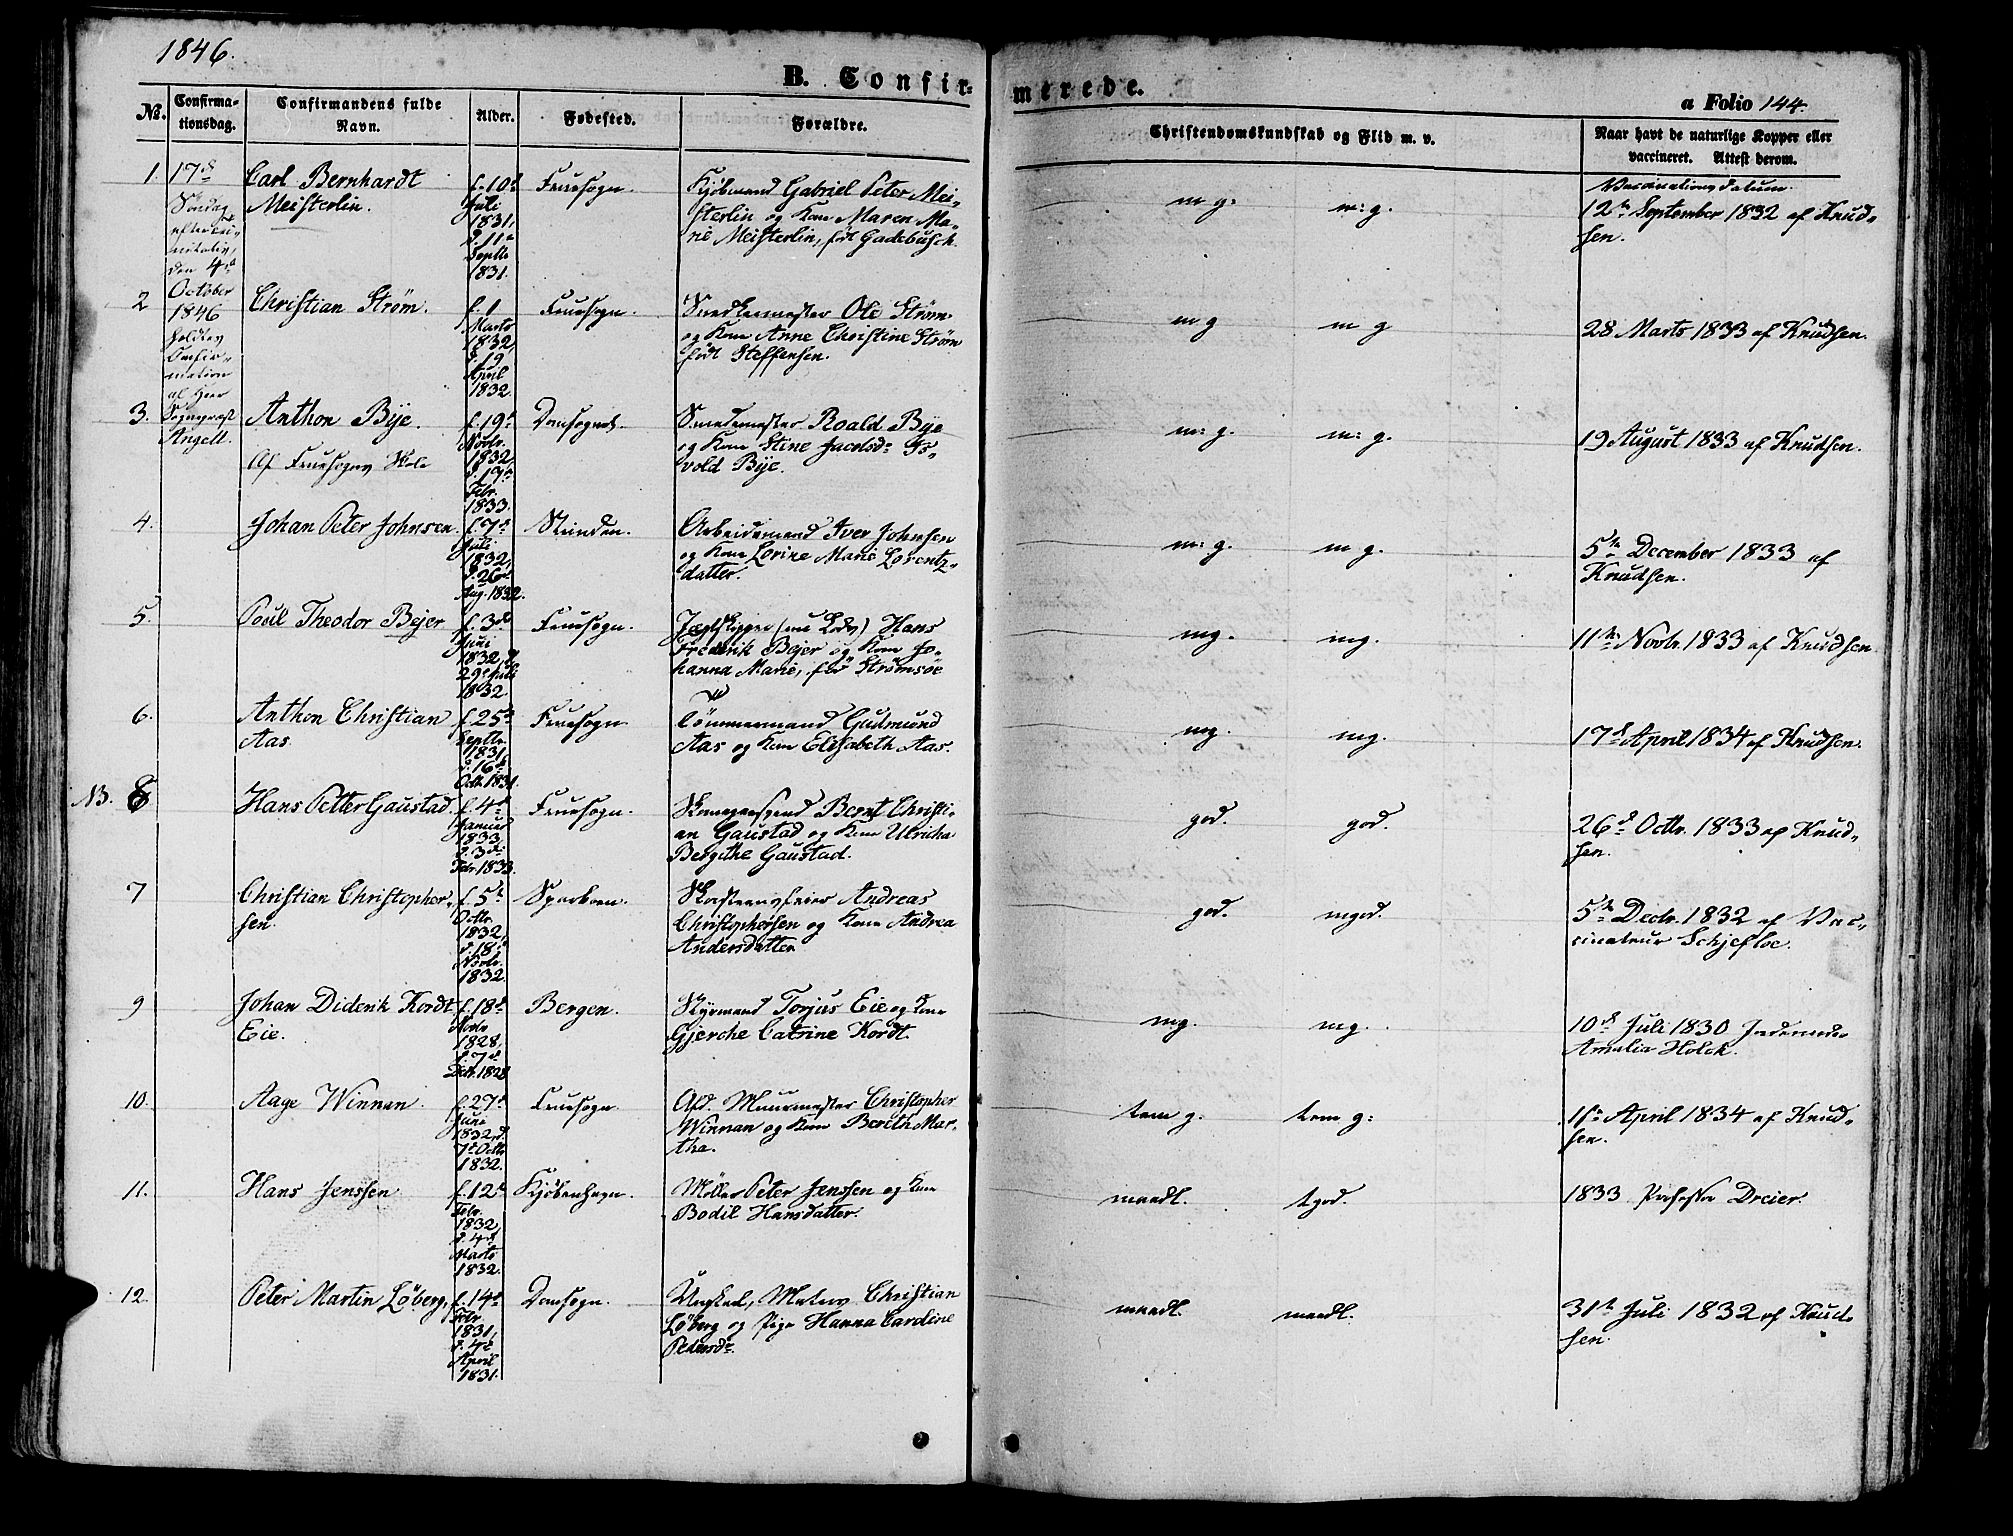 1846.
B. Confirmerede.
a Folio 144.
No.
Confirmationsdag.
Confirmandens fulde Navn.
Alder.
Fødested.
Forældre.
Christendomskundskab og Flid m. v.
Naar havt de naturlige Kopper eller
vaccineret. Attest derom.
17de
Søndag
efter Tri-
nitatis,
den 4de
October
1846
holdtes
Confir-
mation
af Herr
Sognepræst
Angell.
1.
Carl Bernhardt
Meisterlin.
f. 10de
Juli
1831,
d. 11te
Septbr
1831.
Fruesogn.
Kjøbmand Gabriel Peter Mei-
sterlin og Kone Maren Ma-
rie Meisterlin, født Gadebusch.
m g.
m: g.
Vaccinationsdatum.
12te September 1832 af Knud-
sen.
2
Christian Strøm.
f. 1
Marts
1832,
d. 19
April
1832.
Fruesogn.
Snedkermester Ole Strøm
og Kone Anne Christine Strøm
født Steffensen.
m g
m g
28 Marts 1833 af Knudsen.
3.
Anthon Bye.
Af Fruesognes Skole
f. 19de
Novbr.
1832,
d. 17de
Febr.
1833.
Domsognet.
Smedemester Roald Bye
og Kone Stine Jacobsdr
vold Bye.
m: g.
m: g.
19 August 1833 af Knudsen.
4.
Johan Peter Johnsen.
f. 7de
Juli
1832,
d. 26de
Aug. 1832.
Strinden.
Arbeidsmand Iver Johnsen
og Kone Lorine Marie Lorentz-
datter.
m: g.
m g.
5te December 1833 af
Knudsen.
5.
Poul Theodor Bejer
f. 3die
Juni
1832, d.
29de Juli
1832
Fruesogn.
Jægtskipper (nu Lods) Hans
Frederik Bejer og Kone Jo-
hanna Marie, før Strømsøe
mg.
mg.
11te Novbr. 1833 af Knudsen.
6.
Anthon Christian
Aas.
f. 25de
Septbr.
1831,
d. 16de
Octbr. 1831.
Fruesogn.
Tömmermand Gudmund
Aas og Kone Elisabeth Aas.
mg.
mg.
17de April 1834 af Knudsen.
NB. 8
Hans Petter Gaustad.
f. 4de
Januar
1833
d. 3die
Febr. 1833.
Fruesogn.
Bernt Christi-
an Gaustad og Kone Ulricha
Bergithe Gaustad.
god.
god.
26de Octbr. 1833 af Knud-
sen.
7
Christian Christopher-
sen.
f. 5te
Octbr.
1832,
d. 18de
Novbr.
1832.
Sparboen.
Skorsteensfeier Andreas
Christophersen og Kone Andrea
Andersdatter
god.
mgod.
5te Decbr. 1832 af Vac-
cinateur Schjefloe.
9
Johan Diderik Kordt
Eie.
f. 18de
Novbr
1828,
d. 7de
Decbr. 1828
Bergen.
Styrmand Torjus Eie og Kone
Gjerche Catrine Kordt.
mg.
mg.
10de Juli 1830 Jordemoder
Amalia Holck.
10.
Aage Winnan.
f. 27de
Juni
1832, d.
7de Octbr
1832.
Fruesogn.
Afd. Muurmester Christopher
Winnan og Kone Bereth Mar-
tha.
tem g.
tem g:
11te April 1834 af Knud-
sen.
11.
Hans Jenssen
f. 12te
Febr.
1832,
d. 4de
Marts
1832.
Kjøbenhagn.
Møller Peter Jenssen og Kone
Bodil Hansdatter.
maadl.
tgod.
1833 Professor Dreier.
12.
Peter Martin Löberg,
f. 14de
Febr
1831,
d. 4de
April
1831.
Domsogn.
Ungkarl, Matros Christian
Löberg og Pige Hanna Cardine
Pedersdr.
maadl.
maadl.
31te Juli 1832 af Knud-
sen.